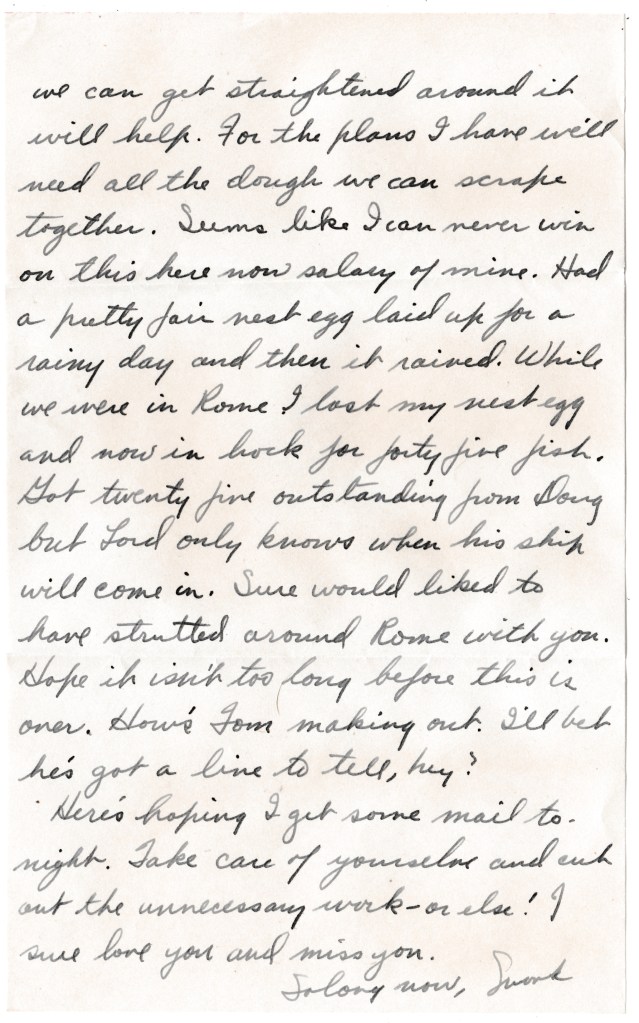 we can get straightened around it
will help. For the plans I have we'll
need all the dough we can scrape
together. Seems like I can never win
on this here now salary of mine. Had
a pretty fair nest egg laid up for a
rainy day and then it rained. While
we were in Rome I lost my nest egg
and now in hock for forty five fish.
Got twenty five outstanding from Doug
but Lord only knows when his ship
will come in. Sure would liked to
have strutted around Rome with you.
Hope it isn't too long before this is
over. How's Tom making out. I'll bet
he's got a line to tell, hey?
Here's hoping I get some mail to-
night. Take care of yourselve and cut
out the unnecessary work - or else! I
sure love you and miss you.
Solong now,